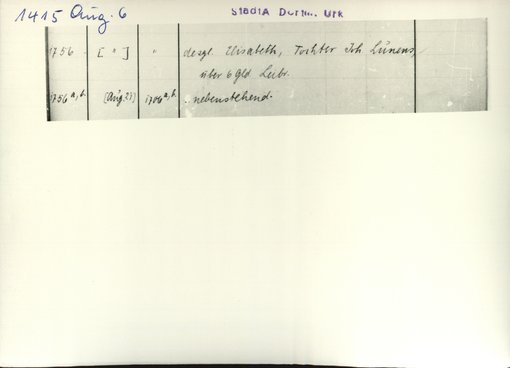 1415 Aug. 6
StadtA Dortm. Urk
1756. [ " ] " desgl. Elisabeth, Tochter Joh Lünens,
über 6 Gld. Leibr.
1756 a, b. [Aug. 27] 1706 a, b. nebenstehend.